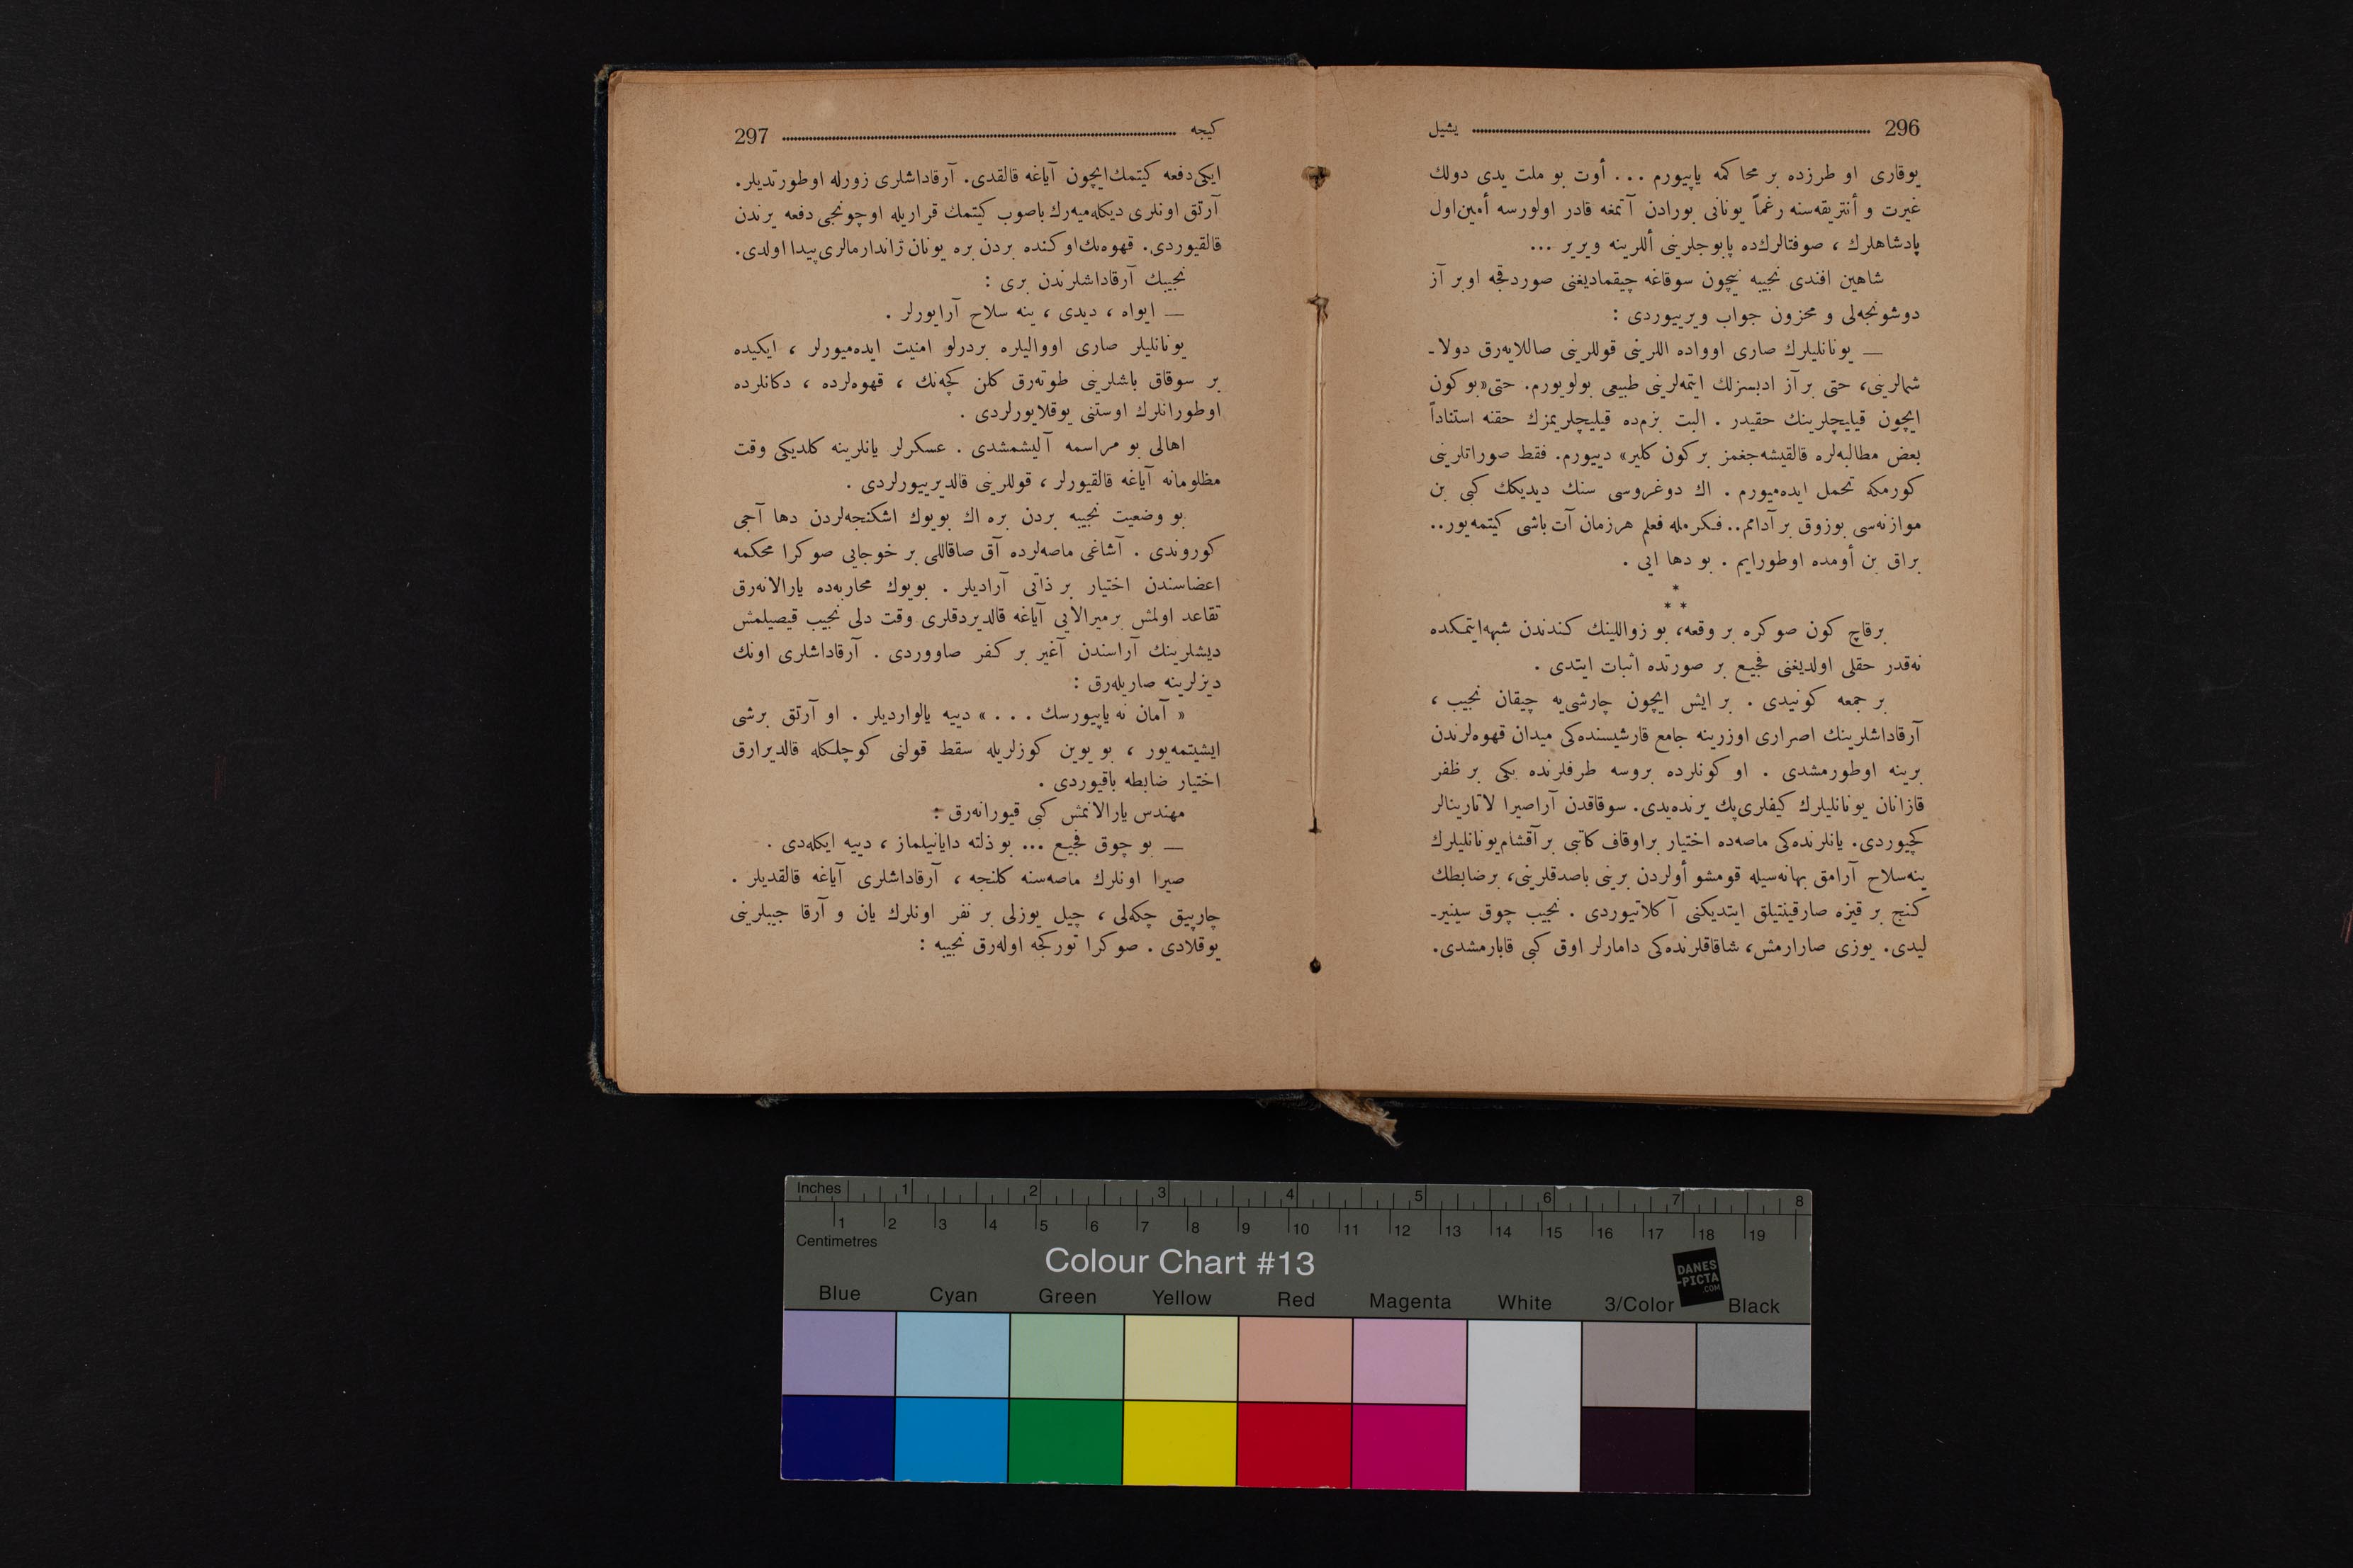 296 يشيل
يوقاری او طرزده بر محاكمه ياپيورم ... أوت بو ملت يدی دولك
غيرت و أنتريقه‌سنه رغماً يونانی بورادن آتمغه قادر اولورسه أمين‌اول
پادشاهلرك ، صوفتالرك‌ده پابوجلرينی أللرينه ويرير ...
شاهين افندی نجيبه نيچون سوقاغه چيقماديغنی صوردقجه اوبر آز
دوشونجه‌لی و محزون جواب ويرييوردی :
— يونانليلرك صاری اوواده اللرينی قوللرينی صاللايه‌رق دولا ـ
شمالرينی، حتی بر آز ادبسزلك ايتمه‌لرينی طبيعی بولويورم. حتی «بو كون
ايچون قيليچلرينك حقيدر . البت بزم‌ده قيليچلريمزك حقنه استناداً
بعض مطالبه‌لره قالقيشه‌جغمز بر كون كلير» دييورم. فقط صوراتلرينی
كورمكه تحمل ايده‌ميورم . اك دوغروسی سنك ديديكك كبی بن
موازنه‌سی بوزوق بر آدامم.. فكرمله فعلم هرزمان آت باشی كيتمه‌يور..
براق بن أومده اوطورايم . بو دها ايی .
*
* *
برقاچ كون صوكره بر وقعه، بو زواللينك كندندن شبهه‌ايتمكده
نه‌قدر حقلی اولديغنی فجيع بر صورتده اثبات ايتدی .
بر جمعه كونيدی . بر ايش ايچون چارشی‌يه چيقان نجيب ،
آرقاداشلرينك اصراری اوزرينه جامع قارشيسنده‌كی ميدان قهوه‌لرندن
برينه اوطورمشدی . او كونلرده بروسه طرفلرنده يكی بر ظفر
قازانان يونانليلرك كيفلری‌پك يرنده‌يدی. سوقاقدن آراصيرا لاتارينالر
كچيوردی. يانلرنده‌كی ماصه‌ده اختيار براوقاف كاتبی بر آقشام‌يونانليلرك
ينه‌سلاح آرامق بهانه‌سيله قومشو أولردن برينی باصدقلرينی، برضابطك
كنج بر قيزه صارقينتيلق ايتديكنی آكلاتيوردی . نجيب چوق سينير ـ
ليدی. يوزی صارارمش، شاقاقلرنده‌كی دامارلر اوق كبی قابارمشدی.
كيجه 297
ايكی‌دفعه كيتمك‌ايچون آياغه قالقدی. آرقاداشلری زورله اوطورتديلر.
آرتق اونلری ديكله‌ميه‌رك‌باصوب كيتمك قراريله اوچونجی دفعه يرندن
قالقيوردی. قهوه‌نك‌اوكنده بردن بره يونان ژاندارمالری‌پيدا اولدی.
نجيبك آرقاداشلرندن بری :
— ايواه ، ديدی ، ينه سلاح آرايورلر .
يونانليلر صاری اوواليلره بردرلو امنيت ايده‌ميورلر ، ايكيده
بر سوقاق باشلرينی طوته‌رق كلن كچه‌نك ، قهوه‌لرده ، دكانلرده
اوطورانلرك اوستنی يوقلايورلردی .
اهالی بو مراسمه آليشمشدی . عسكرلر يانلرينه كلديكی وقت
مظلومانه آياغه قالقيورلر ، قوللرينی قالديرييورلردی .
بو وضعيت نجيبه بردن بره اك بويوك اشكنجه‌لردن دها آجی
كوروندی . آشاغی ماصه‌لرده آق صاقاللی بر خوجايی صوكرا محكمه
اعضاسندن اختيار بر ذاتی آراديلر . بويوك محاربه‌ده يارالانه‌رق
تقاعد اولمش برميرالايی آياغه قالديردقلری وقت دلی نجيب قيصيلمش
ديشلرينك آراسندن آغير بر كفر صاووردی . آرقاداشلری اونك
ديزلرينه صاريله‌رق :
« آمان نه ياپيورسك . . . » دييه يالوارديلر . او آرتق برشی
ايشيتمه‌يور ، بو يوين كوزلريله سقط قولنی كوچلكله قالديرارق
اختيار ضابطه باقيوردی .
مهندس يارالانمش كبی قيورانه‌رق :
— بو چوق فجيع ... بو ذلته دايانيلماز ، دييه ايكله‌دی .
صيرا اونلرك ماصه‌سنه كلنجه ، آرقاداشلری آياغه قالقديلر .
چارپيق چكه‌لی ، چيل يوزلی بر نفر اونلرك يان و آرقا جيبلرينی
يوقلادی . صوكرا توركجه اوله‌رق نجيبه :
Inches 1 2 3 4 5 6 7 8
1 2 3 4 5 6 7 8 9 10 11 12 13 14 15 16 17 18 19
Centimetres
Colour Chart #13
DANES
-PICTA
.COM
Blue Cyan Green Yellow Red Magenta White 3/Color Black